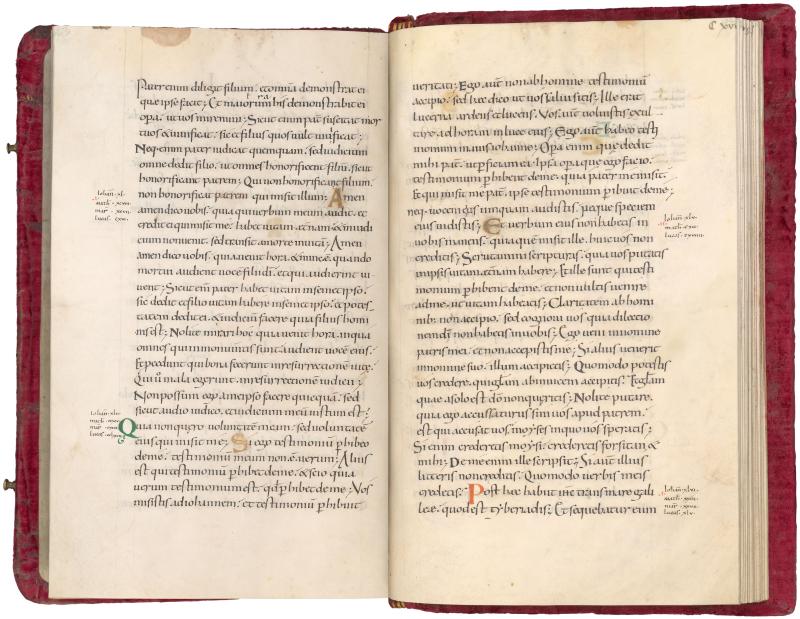 Pater enim diligit filium. et omnia demonstrat ei
quae ipse facit; Et maiora his demonstrabit ei
opa. ut uos miremini; Sicut enim pat̄ suscitat mor
tuos et uiuificat. sic et filius quos uult uiuificat;
Neq; enim pater iudicat quemquam. sed iudicium
omne dedit filio. ut omnes honorificent filiū. sicut
honorificant patrem; Qui non honorificant filium.
non honorificat patrem qui misit illum; Amen
amen dico uobis. quia qui uerbum meum audit. et
credit ei qui misit me. habet uitam aeternam. & in iudi
cium non uenit. sed transit a morte in uitā; Amen
amen dico uobis. quia uenit hora. & nunc ē. quando
mortui audient uocē filii dī. et qui audierint ui
uent; Sicut enī pater habet uitam in semet ipso.
sic dedit et filio uitam habere in semet ipso. et potes
tatem dedit ei. & iudiciū facere quia filius homi
nis est; Nolite mirari hoc quia uenit hora. in qua
omnes qui in monumentis sunt. audient uocē eius.
Et procedent qui bona fecerunt in resurrectionē uitae.
Qui ū mala egerunt. in resurrectionē iudicii;
Non possum ego a me ipso facere quicquā. sed
sicut audio iudico. et iudicium meū iustum est;
Quia non quero uoluntatē meam. sed uoluntatē
eius qui misit me; Si ego testimoniū phibeo
de me. testimoniū meum non ē uerum; Alius
est qui testimoniū phibet de me. & scio quia
uerum testimonium est. qđ phibet de me; Vos
misistis ad iohannem. et testimoniū phibuit
Iohanī · xl ·
Iohanī · xli ·
C xvi
ueritati; Ego aūt non ab homine testimoniū
accipio. sed haec dico ut uos salui sitis; Ille erat
lucerna ardens et lucens; Vos aūt uoluistis exul
tare ad horam in luce eius; Ego aūt habeo testi
monium maius iohanne; Opera enim quae dedit
mihi pat̄. ut pficiam ea. ipsa opera quae ego facio.
testimonium phibent de me. quia pater me misit.
Et qui misit me pat̄. ipse testimonium phibuit de me;
neq; uocem eius umquam audistis. neque speciem
eius uidistis; Et uerbum eius non habetis in
uobis manens. quia quē misit ille. huic uos non
creditis; Scrutamini scripturas. quia uos putatis
in ipsis uitam aeternam habere; Et ille sunt quae testi
monium phibent de me. et non uultis uenire
ad me. ut uitam habeatis; Claritatem ab homi
nibus non accipio. sed cognoui uos quia dilectio
nem dī non habetis in uobis; Ego ueni in nomine
patris mei. et non accepistis me; Si alius uenerit
in nomine suo. illum accipietis; Quomodo potestis
uos credere. qui gloriam ab inuicem accipitis. Et gloriam
quae a solo est dō non queritis; Nolite putare.
quia ego accusaturus sim uos apud patrem.
est qui accusat uos moyses in quo uos speratis;
Si enim crederetis moysi. crederetis forsitan &
mihi; De me enim ille scripsit; Si aūt illius
litteris non creditis. Quomodo uerbis meis
credetis; Post haec habiit ihs trans mare gali
leae. quod est tyberiadis; Et sequebatur eum